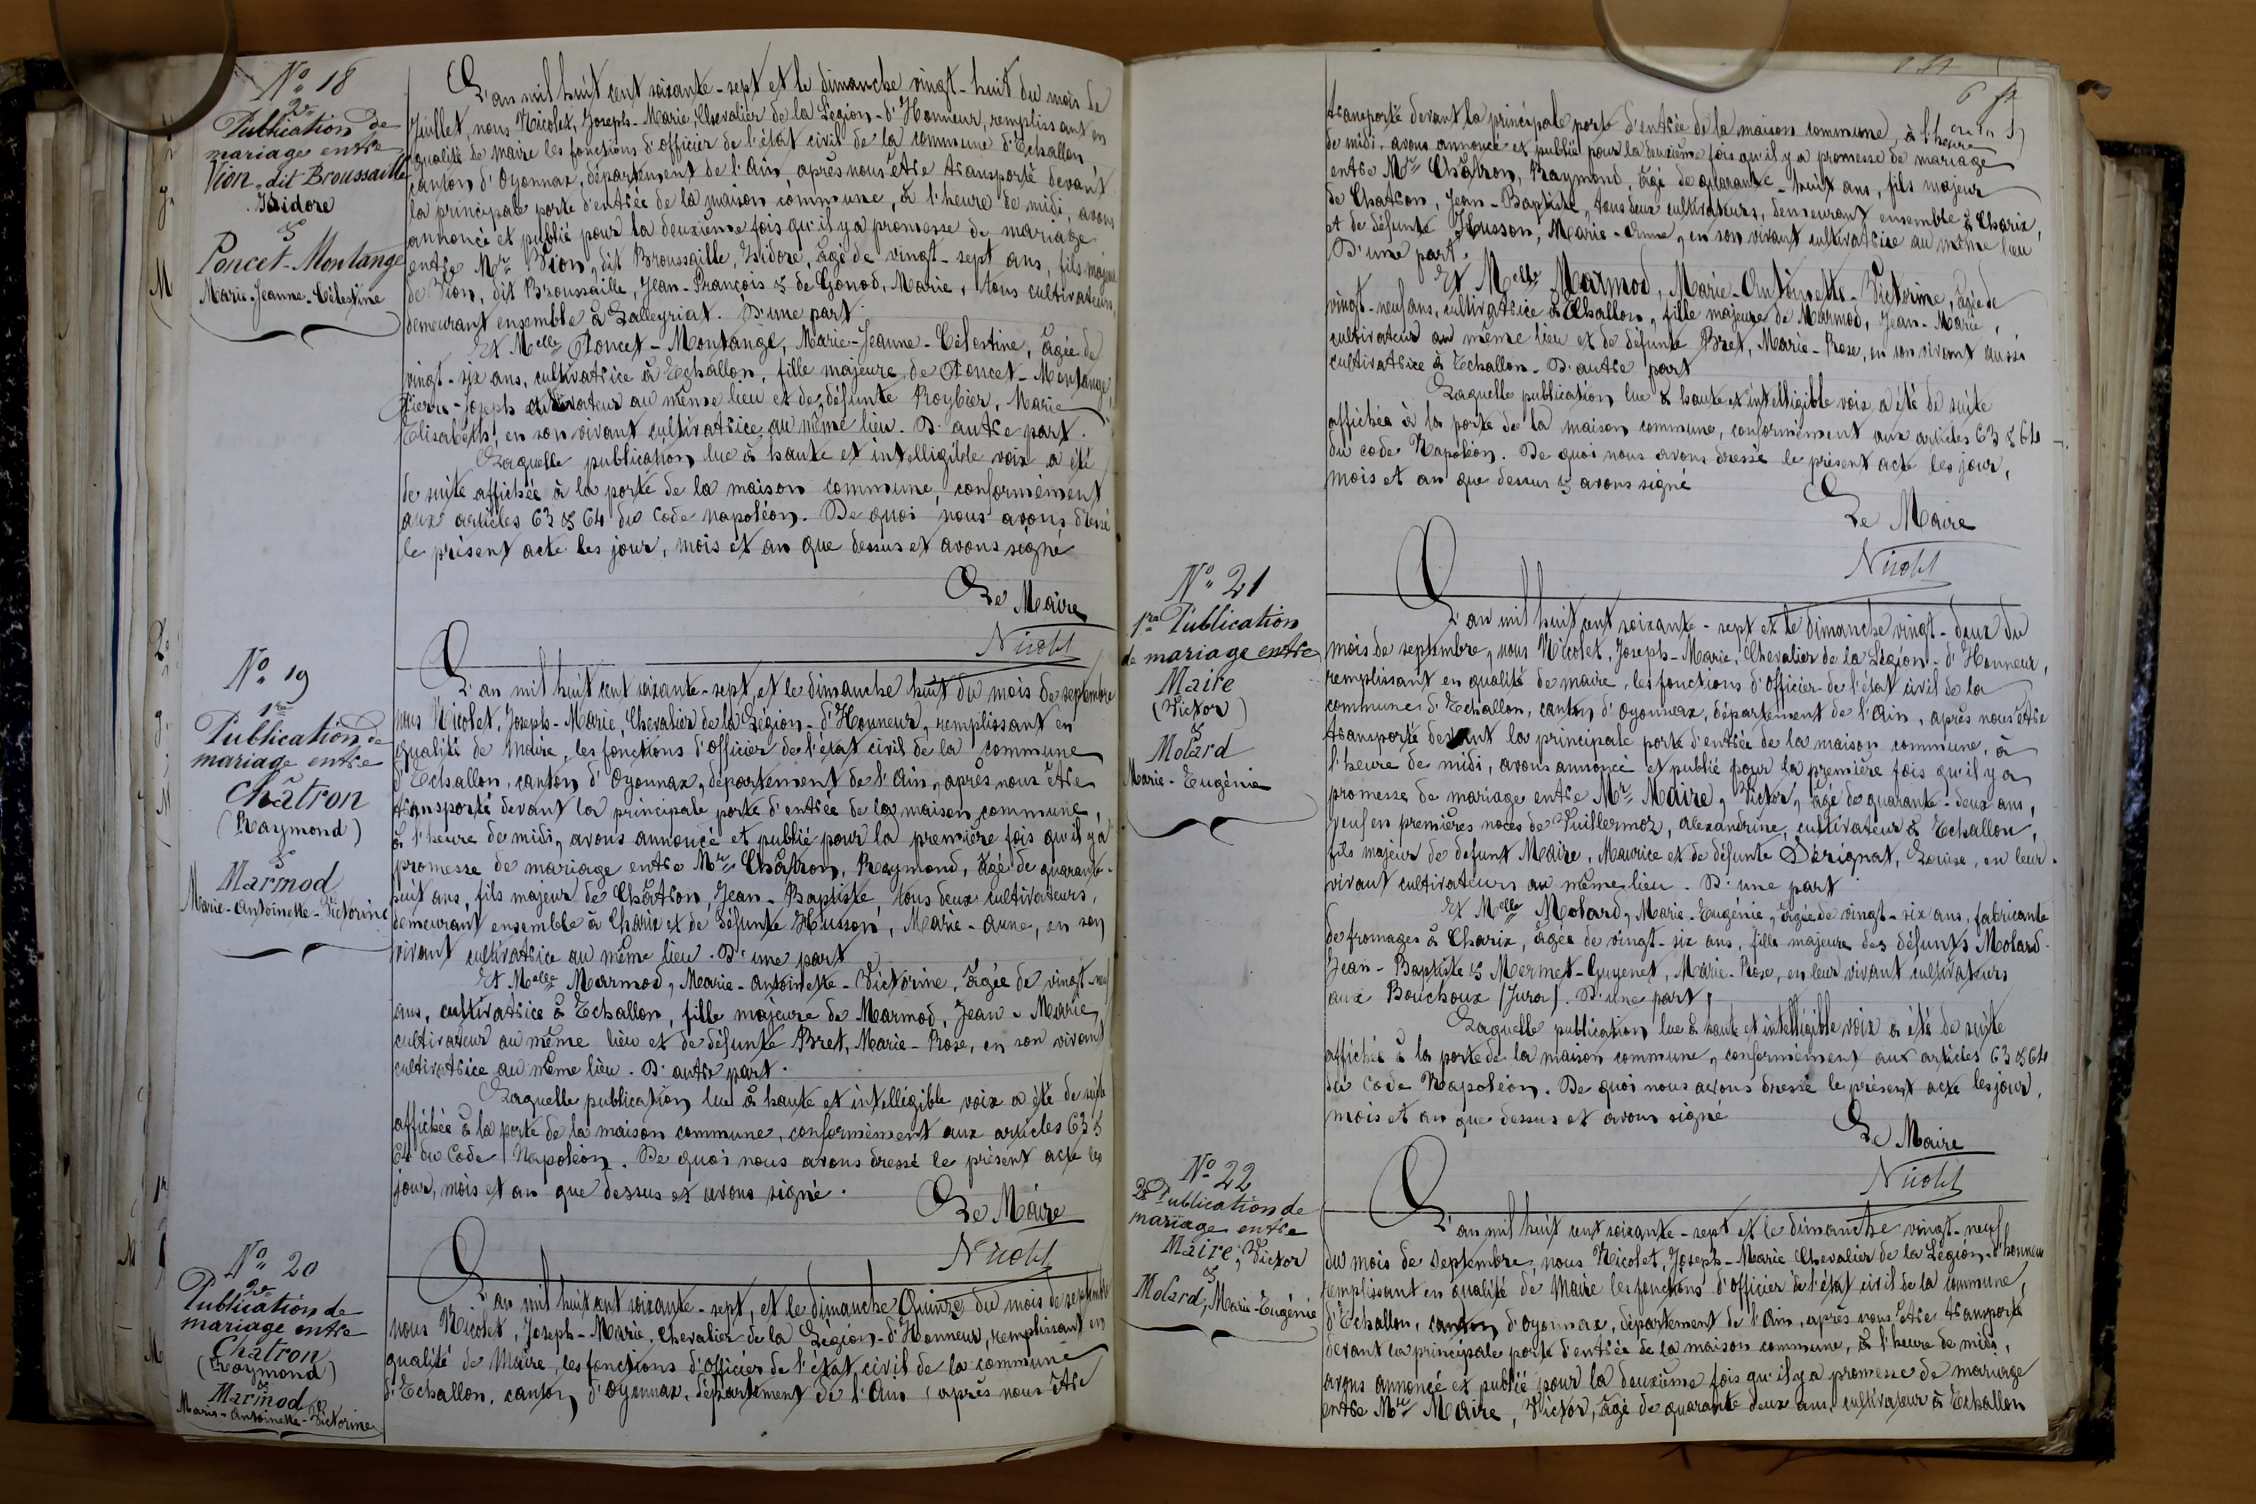 N° 18
2e
Publication de
mariage entre
Vion, dit Broussaille
Isidore
&
Poncet-Montange
Marie-Jeanne-Célestine
L'an mil huit cent soixante-sept et le dimanche vingt-huit du mois de
Juillet, nous Nicolet, Joseph-Marie, Chevalier de la Légion-d'Honneur, remplissant en
qualité de maire les fonctions d'officier de l'état civil de la commune d'Echallon,
canton d'Oyonnax, département de l'Ain, après nous être transporté devant
la principale porte d'entrée de la maison commune, à l'heure de midi, avons
annoncé et publié pour la deuxième fois qu'il y a promesse de mariage
entre Mr Vion, dit Broussaille, Isidore, âgé de vingt-sept ans, fils majeur
de Vion, dit Broussaille, Jean-François & de Gonod, Marie, tous cultivateurs,
demeurant ensemble à Lalleyriat. D'une part.
Et Melle Poncet-Montange, Marie-Jeanne-Célestine, âgée de
vingt-six ans, cultivatrice à Echallon, fille majeure de Poncet-Montange,
Pierre-Joseph cultivateur au même lieu et de défunte Roybier, Marie
Elisabeth, en son vivant cultivatrice au même lieu. D'autre part.
Laquelle publication lue à haute et intelligible voix a été
de suite affichée à la porte de la maison commune, conformément
aux articles 63 & 64 du Code napoléon. De quoi nous avons dressé
le présent acte les jour, mois et an que dessus et avons signé
Le Maire
Nicolet
N° 19
1re
Publication de
mariage entre
Châtron
(Raymond)
&
Marmod
Marie-Antoinette-Victorine
L'an mil huit cent soixante-sept, et le dimanche huit du mois de septembre
nous Nicolet, Joseph-Marie, Chevalier de la Légion-d'Honneur, remplissant en
qualité de Maire, les fonctions d'officier de l'état civil de la commune
d'Echallon, canton d'Oyonnax, département de l'Ain, après nous être
transporté devant la principale porte d'entrée de la maison commune,
à l'heure de midi, avons annoncé et publié pour la première fois qu'il y a
promesse de mariage entre Mr Châtron, Raymond, âgé de quarante-
huit ans, fils majeur de Châtron, Jean-Baptiste, tous deux cultivateurs,
demeurant ensemble à Charix et de défunte Husson, Marie-Anne, en son
vivant cultivatrice au même lieu. D'une part
Et Melle Marmod, Marie-Antoinette-Victorine, âgée de vingt-neuf
ans, cultivatrice à Echallon, fille majeure de Marmod, Jean-Marie,
cultivateur au même lieu et de défunte Bret, Marie-Rose, en son vivant
cultivatrice au même lieu. D'autre part.
Laquelle publication lue à haute et intelligible voix a été de suite
affichée à la porte de la maison commune, conformément aux articles 63 &
64 du Code Napoléon. De quoi nous avons dressé le présent acte les
jour, mois et an que dessus et avons signé.
Le Maire
Nicolet
N° 20
2e
Publication de
mariage entre
Châtron
(Raymond)
&
Marmod
Marie-Antoinette-Victorine
L'an mil huit cent soixante-sept, et le dimanche Quinze du mois de septembre
nous Nicolet, Joseph-Marie, Chevalier de la Légion-d'Honneur, remplissant en
qualité de Maire, les fonctions d'officier de l'état civil de la commune
d'Echallon, canton d'Oyonnax, département de l'Ain, après nous être
transporté devant la principale porte d'entrée de la maison commune, à l'heure
de midi, avons annoncé et publié pour la deuxième fois qu'il y a promesse de mariage
entre Mr Châtron, Raymond, âgé de quarante-huit ans, fils majeur
de Chatron, Jean-Baptiste, tous deux cultivateurs, demeurant ensemble à Charix,
et de défunte Husson, Marie-Anne, en son vivant cultivatrice au même lieu
D'une part.
Et Melle Marmod, Marie-Antoinette-Victorine, âgée de
vingt-neuf ans, cultivatrice à Echallon, fille majeure de Marmod, Jean-Marie,
cultivateur au même lieu et de défunte Bret, Marie-Rose, en son vivant aussi
cultivatrice à Echallon. D'autre part
Laquelle publication lue à haute et intelligible voix a été de suite
affichée à la porte de la maison commune, conformément aux articles 63 & 64
du code Napoléon. De quoi nous avons dressé le présent acte les jour,
mois et an que dessus & avons signé
Le Maire
Nicolet
N° 21
1re Publication
de mariage entre
Maire
(Victor)
&
Molard
Marie-Eugénie
L'an mil huit cent soixante-sept et le dimanche vingt-deux du
mois de septembre, nous Nicolet, Joseph-Marie, Chevalier de la Légion-d'Honneur,
remplissant en qualité de maire, les fonctions d'Officier de l'état civil de la
commune d'Echallon, canton d'Oyonnax, département de l'Ain, après nous être
transporté devant la principale porte d'entrée de la maison commune, à
l'heure de midi, avons annoncé et publié pour la première fois qu'il y a
promesse de mariage entre Mr Maire, Victor, âgé de quarante-deux ans,
veuf en premières noces de Vuillermoz, Alexandrine, cultivateur à Echallon,
fils majeur de défunt Maire, Maurice et de défunte Sérignat, Louise, en leur
vivant cultivateurs au même lieu. D'une part
Et Melle Molard, Marie-Eugénie, âgée de vingt-six ans, fabricante
de fromages à Charix, âgée de vingt-six ans, fille majeure des défunts Molard
Jean-Baptiste & Mermet-Guyenet, Marie-Rose, en leur vivant cultivateurs
aux Bouchoux (Jura). D'une part.
Laquelle publication lue à haute et intelligible voix a été de suite
affichée à la porte de la maison commune, conformément aux articles 63 & 64
du Code Napoléon. De quoi nous avons dressé le présent acte les jour,
mois et an que dessus et avons signé
Le Maire
Nicolet
N° 22
2e Publication de
mariage entre
Maire, Victor
&
Molard, Marie-Eugénie
L'an mil huit cent soixante-sept et le dimanche vingt-neuf
du mois de Septembre, nous Nicolet, Joseph-Marie Chevalier de la Légion-d'honneur
remplissant en qualité de Maire les fonctions d'officier de l'état civil de la commune,
d'Echallon, canton d'Oyonnax, département de l'Ain, après nous être transporté
devant la principale porte d'entrée de la maison commune, à l'heure de midi,
avons annoncé et publié pour la deuxième fois qu'il y a promesse de mariage
entre Mr Maire, Victor, âgé de quarante deux ans, cultivateur à Echallon